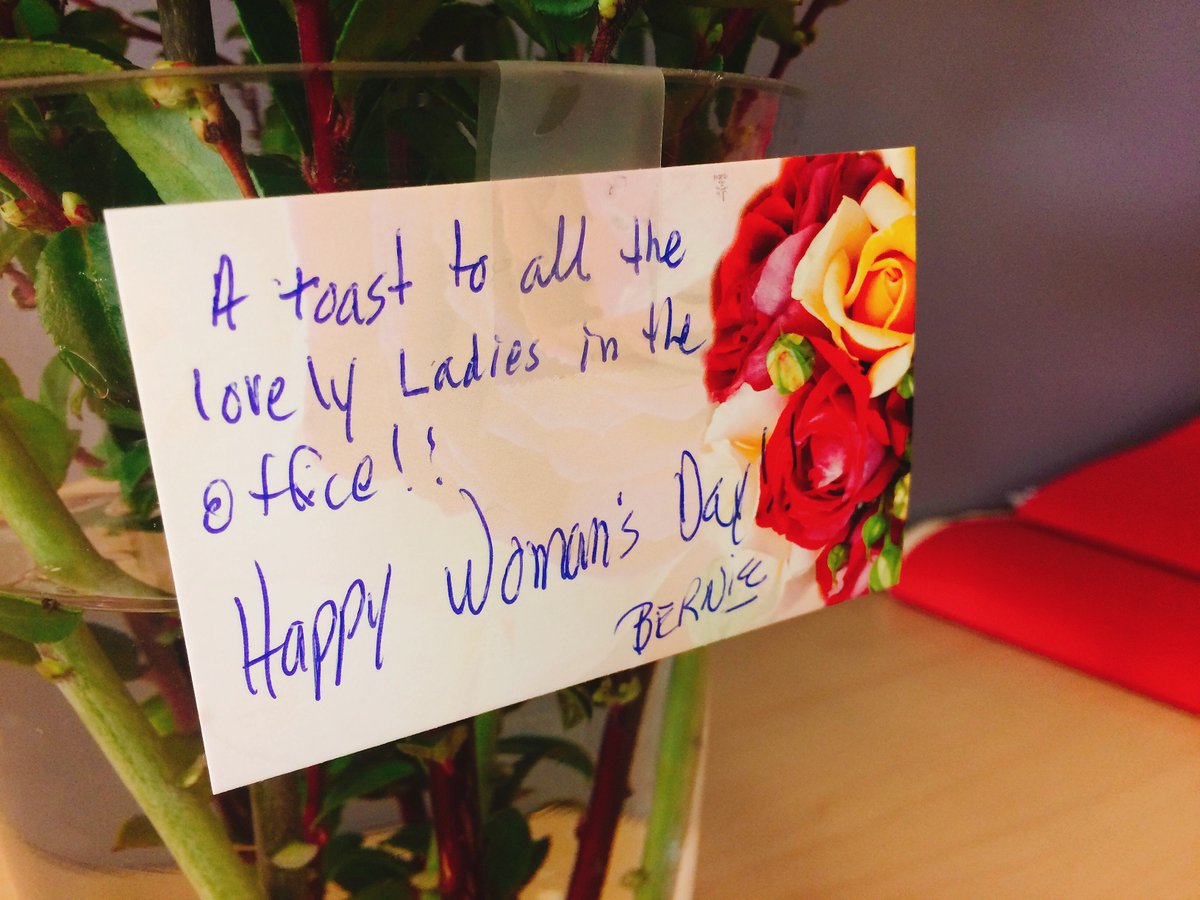 A toast to all the
lovely Ladies in the
office!!
Happy Woman's Day!
BERNIE